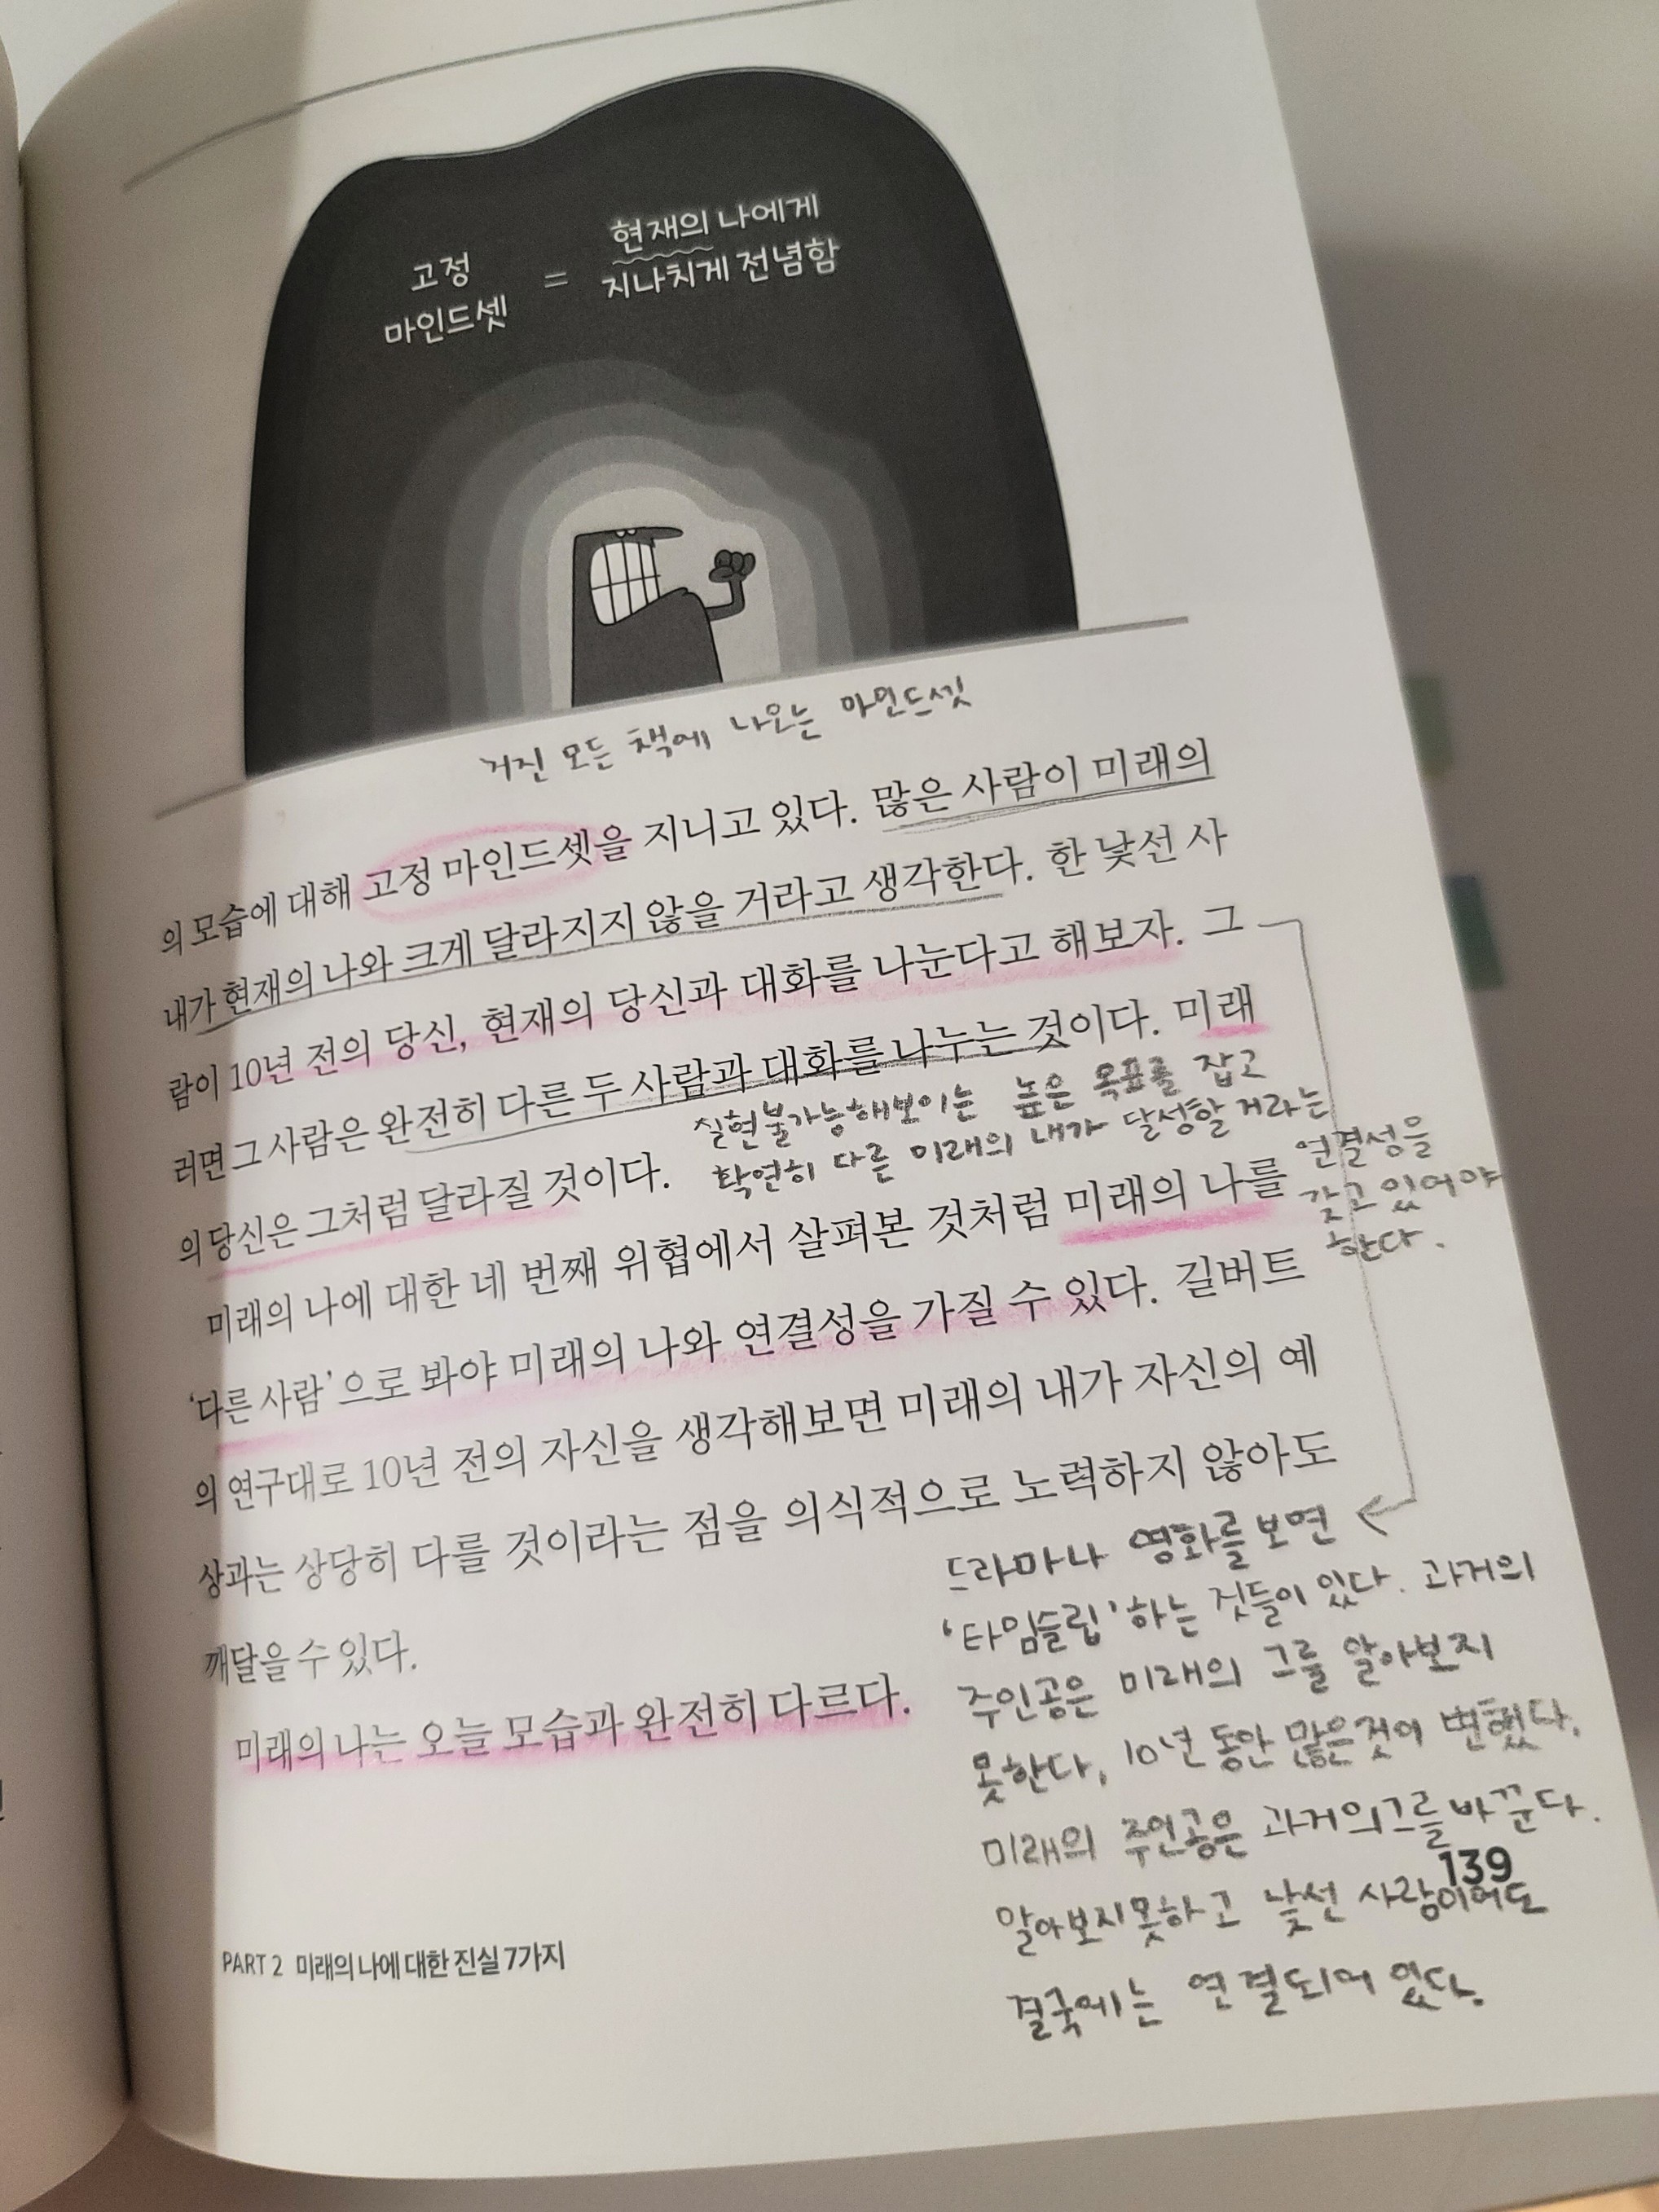 고정
마인드셋
=
현재의 나에게
지나치게 전념함
거진 모든 책에 나오는 마인드셋
의 모습에 대해 고정 마인드셋을 지니고 있다. 많은 사람이 미래의
내가 현재의 나와 크게 달라지지 않을 거라고 생각한다. 한 낯선 사
람이 10년 전의 당신, 현재의 당신과 대화를 나눈다고 해보자. 그
러면 그 사람은 완전히 다른 두 사람과 대화를 나누는 것이다. 미래
의 당신은 그처럼 달라질 것이다.
실현불가능해보이는 높은 목표를 잡고
확연히 다른 미래의 내가 달성할거라는
연결성을
갖고 있어야
한다.
미래의 나에 대한 네 번째 위협에서 살펴본 것처럼 미래의 나를
‘다른 사람’으로 봐야 미래의 나와 연결성을 가질 수 있다. 길버트
의 연구대로 10년 전의 자신을 생각해보면 미래의 내가 자신의 예
상과는 상당히 다를 것이라는 점을 의식적으로 노력하지 않아도
깨달을 수 있다.
미래의 나는 오늘 모습과 완전히 다르다.
드라마나 영화를 보면
‘타임슬립’하는 것들이 있다. 과거의
주인공은 미래의 그를 알아보지
못한다, 10년 동안 많은것이 변했다,
미래의 주인공은 과거의그를 바꾼다.
알아보지못하고 낯선 사람이어도
결국에는 연결되어 있다.
139
PART 2 미래의 나에 대한 진실 7가지